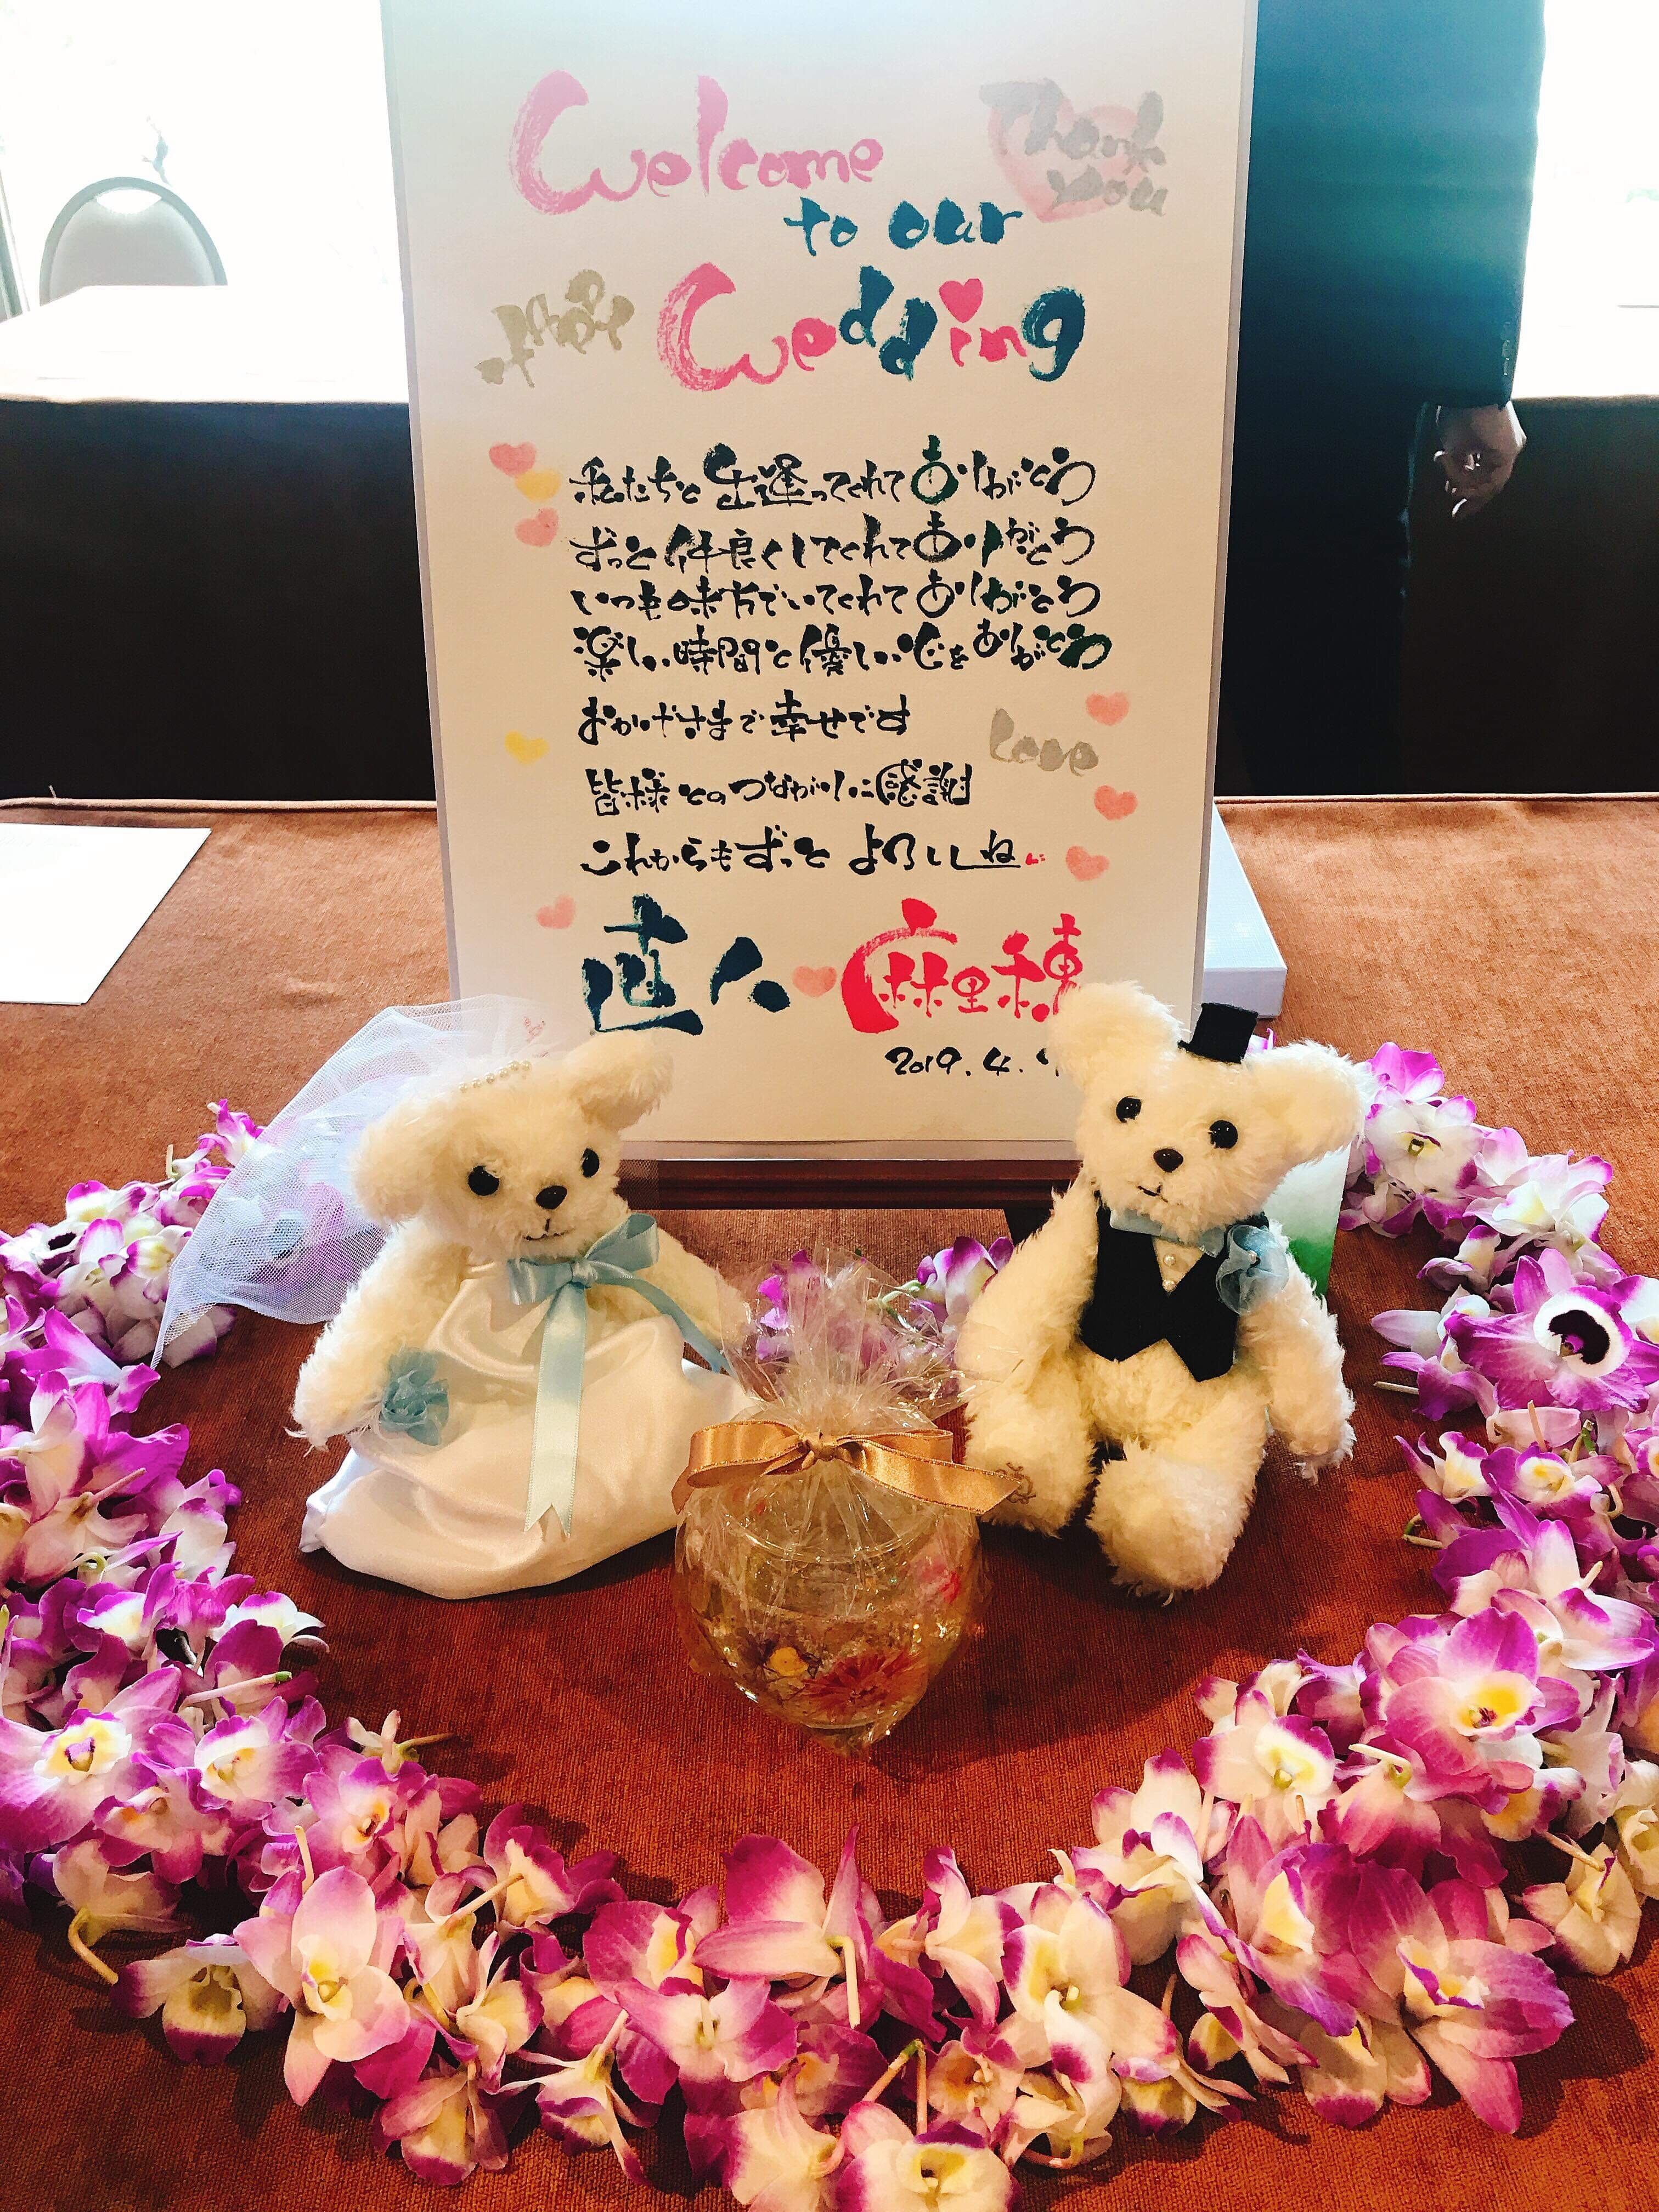 Welcome
Thank
you
to our
Happy
Wedding
私たちと出逢ってくれてありがとう
ずっと仲良くしてくれてありがとう
いつも味方でいてくれてありがとう
楽しい時間と優しい心をありがとう
おかげさまで幸せです
Love
皆様とのつながりに感謝
これからもずっとよろしくね
直人 麻里穂
2019.4.